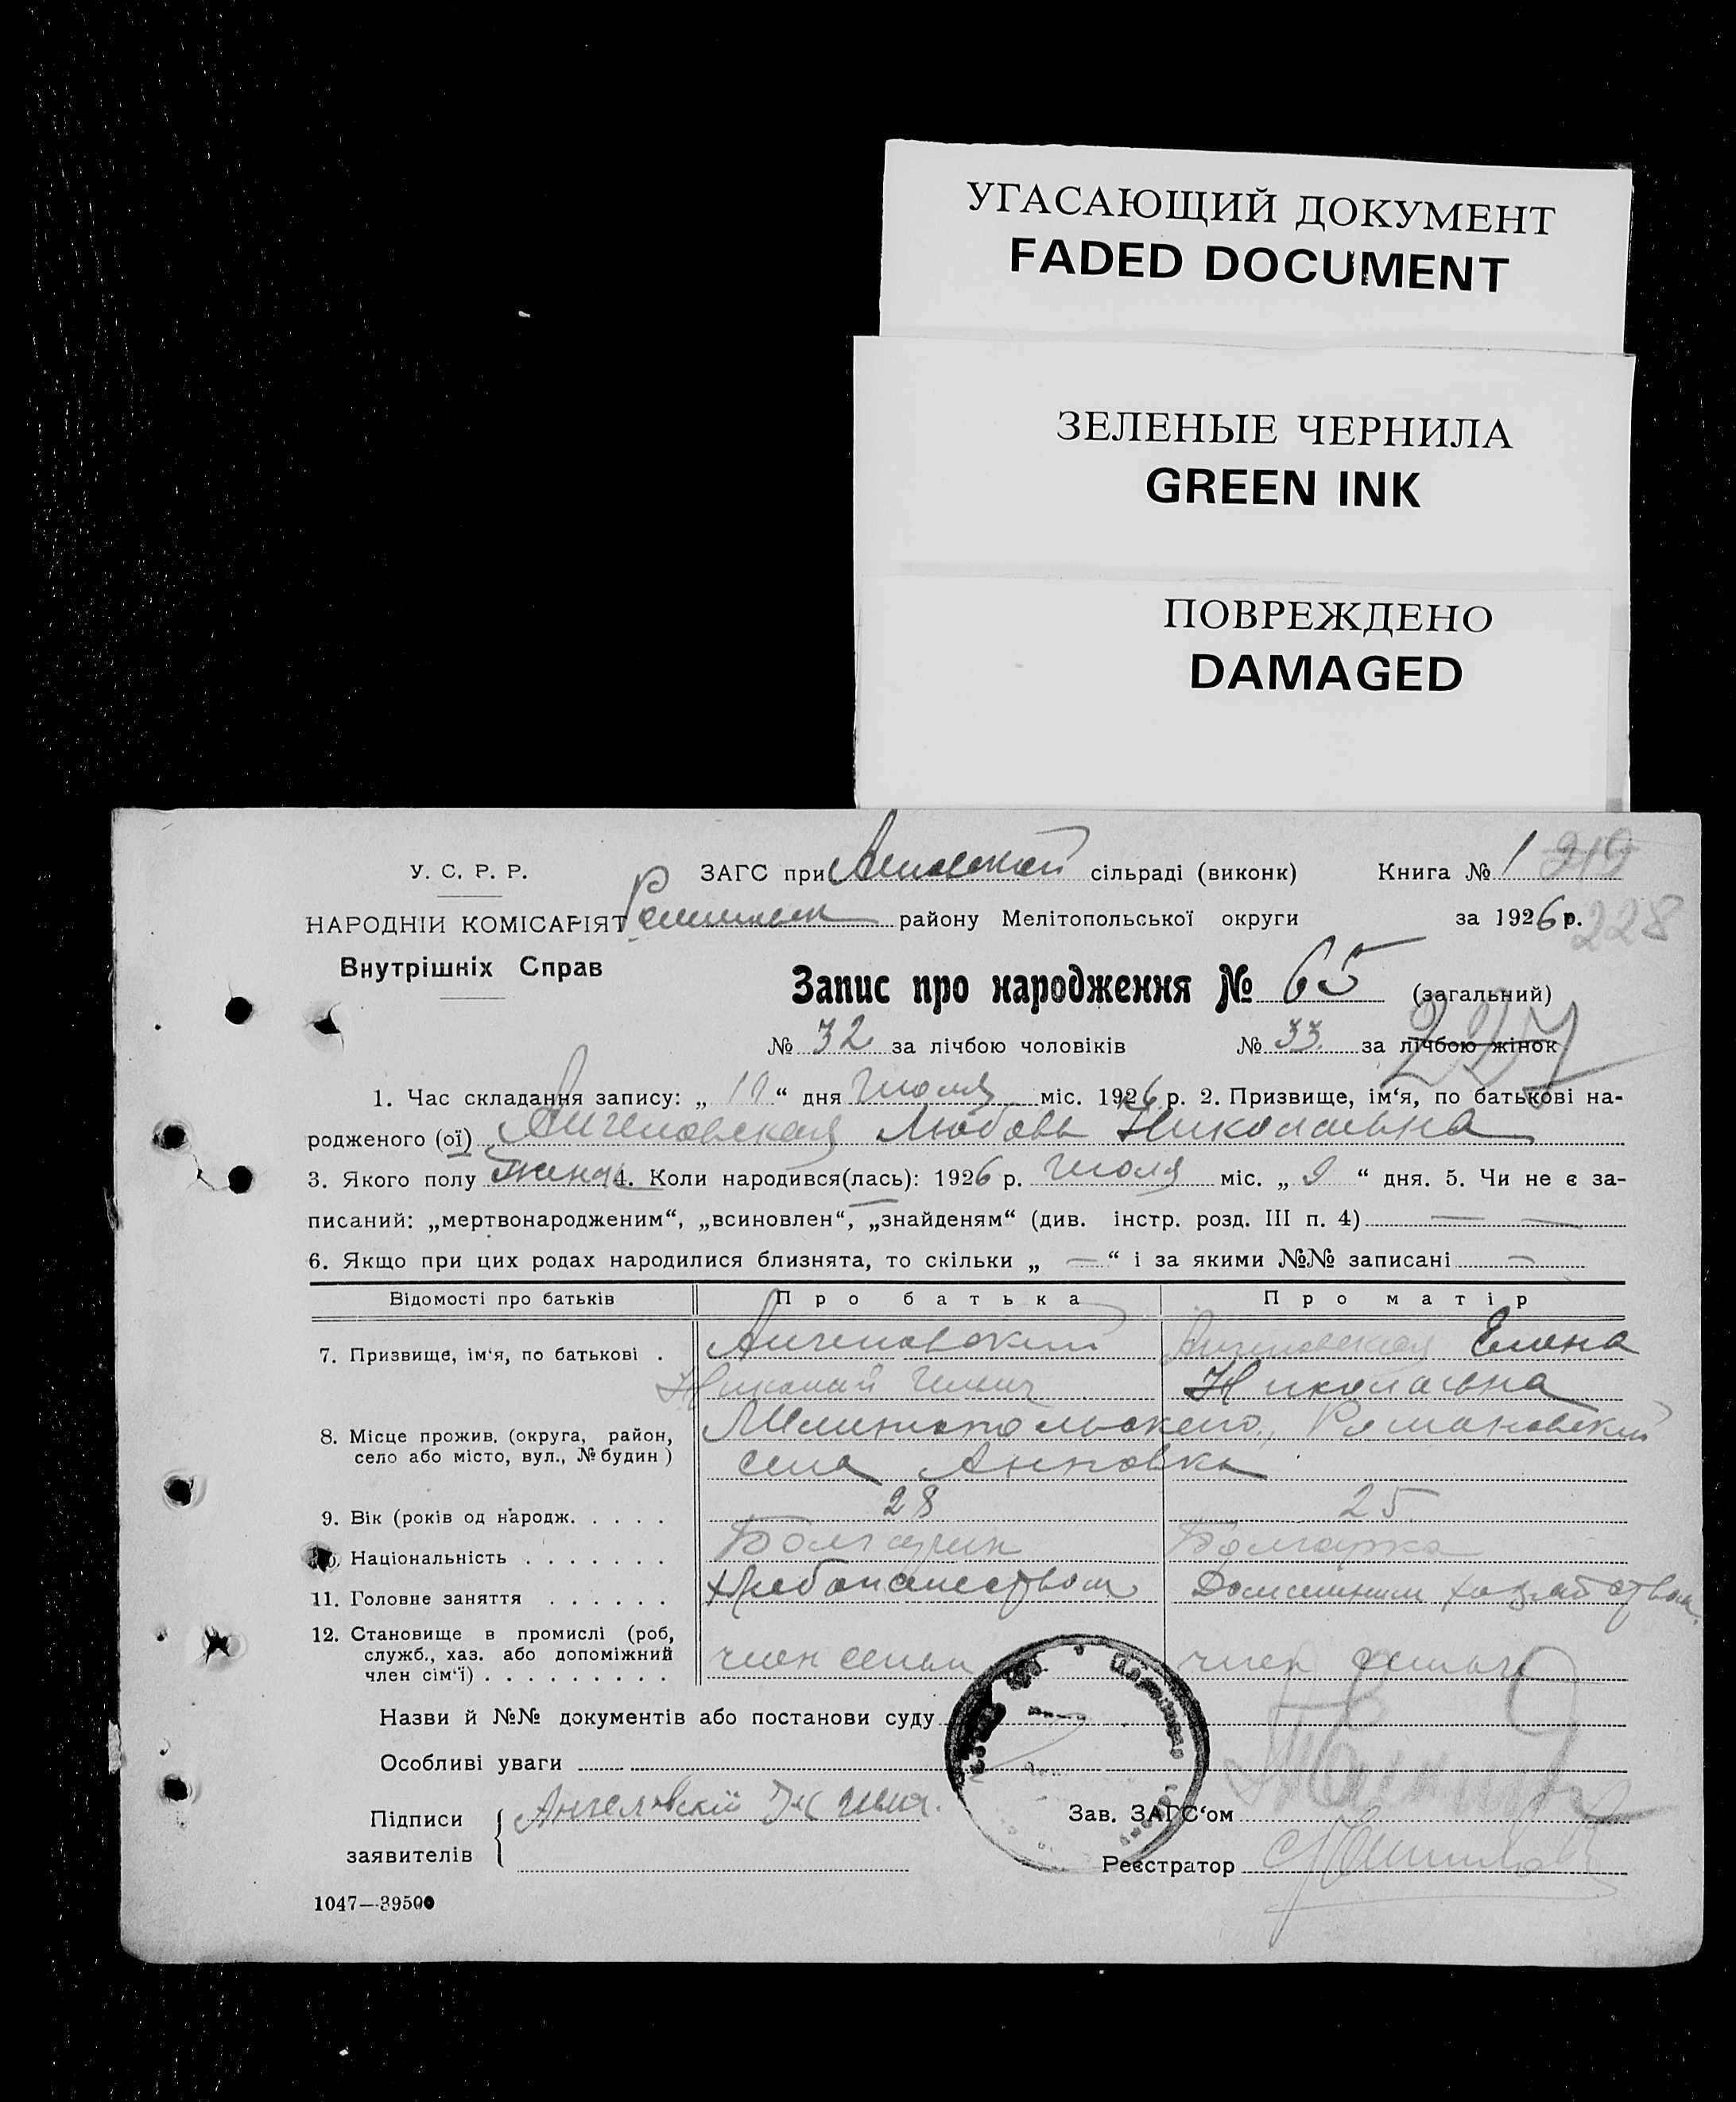 УГАСАЮЩИЙ ДОКУМЕНТ
FADED DOCUMENT
ЗЕЛЕНЫЕ ЧЕРНИЛА
GREEN INK
ПОВРЕЖДЕНО
DAMAGED
У. С. Р. Р. ЗАГС при сільраді (виконк) Книга № 1 219
НАРОДНІЙ КОМІСАРІЯТ району Мелітопольської округи за 1926 р. 228
Внутрішніх Справ
Запис про народження № 65 (загальний)
№ 32 за лічбою чоловіків № 33 за лічбою жінок 227
1. Час складання запису: „ 10 “ дня Июля міс. 1926 р. 2. Призвище, ім‘я, по батькові на-
родженого (ої) Ангеловская Любовь Николаевна
3. Якого полу женск 4. Коли народився(лась): 1926 р. Июля міс. „ 9 “ дня. 5. Чи не є за-
писаний: „мертвонародженим“, „всиновлен“, „знайденям“ (див. інстр. розд. III п. 4) — —
6. Якщо при цих родах народилися близнята, то скільки „ — “ і за якими №№ записані —
Відомості про батьків Про батька Про матір
7. Призвище, ім‘я, по батькові . Ангеловский Ангеловская Елена
Николай Ильич Николаевна
8. Місце прожив. (округа, район, Мелитопольского, Романовский
село або місто, вул., № будин) села Анновка
9. Вік (років од народж. . . . . 28 25
10. Національність . . . . . . . Болгарин Болгарка
11. Головне заняття . . . . . . Хлебопашеством Домашним хозяйством
12. Становище в промислі (роб, служб., хаз. або допоміжний член сім‘ї) . . . . . . . . . член семьи член семьи
Назви й №№ документів або постанови суду
Особливі уваги
Підписи заявителів Ангеловскій Зав. ЗАГС‘ом
Реєстратор
1047—39500